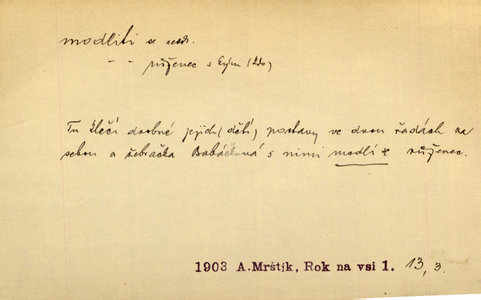 modliti se nedk.
- - růženec s kým (kdo)
Tu klečí drobné jejich (dětí) postavy ve dvou řadách za
sebou a žebračka Babáčková s nimi modlí se růženec.
1903 A.Mrštík, Rok na vsi 1. 13, 3.